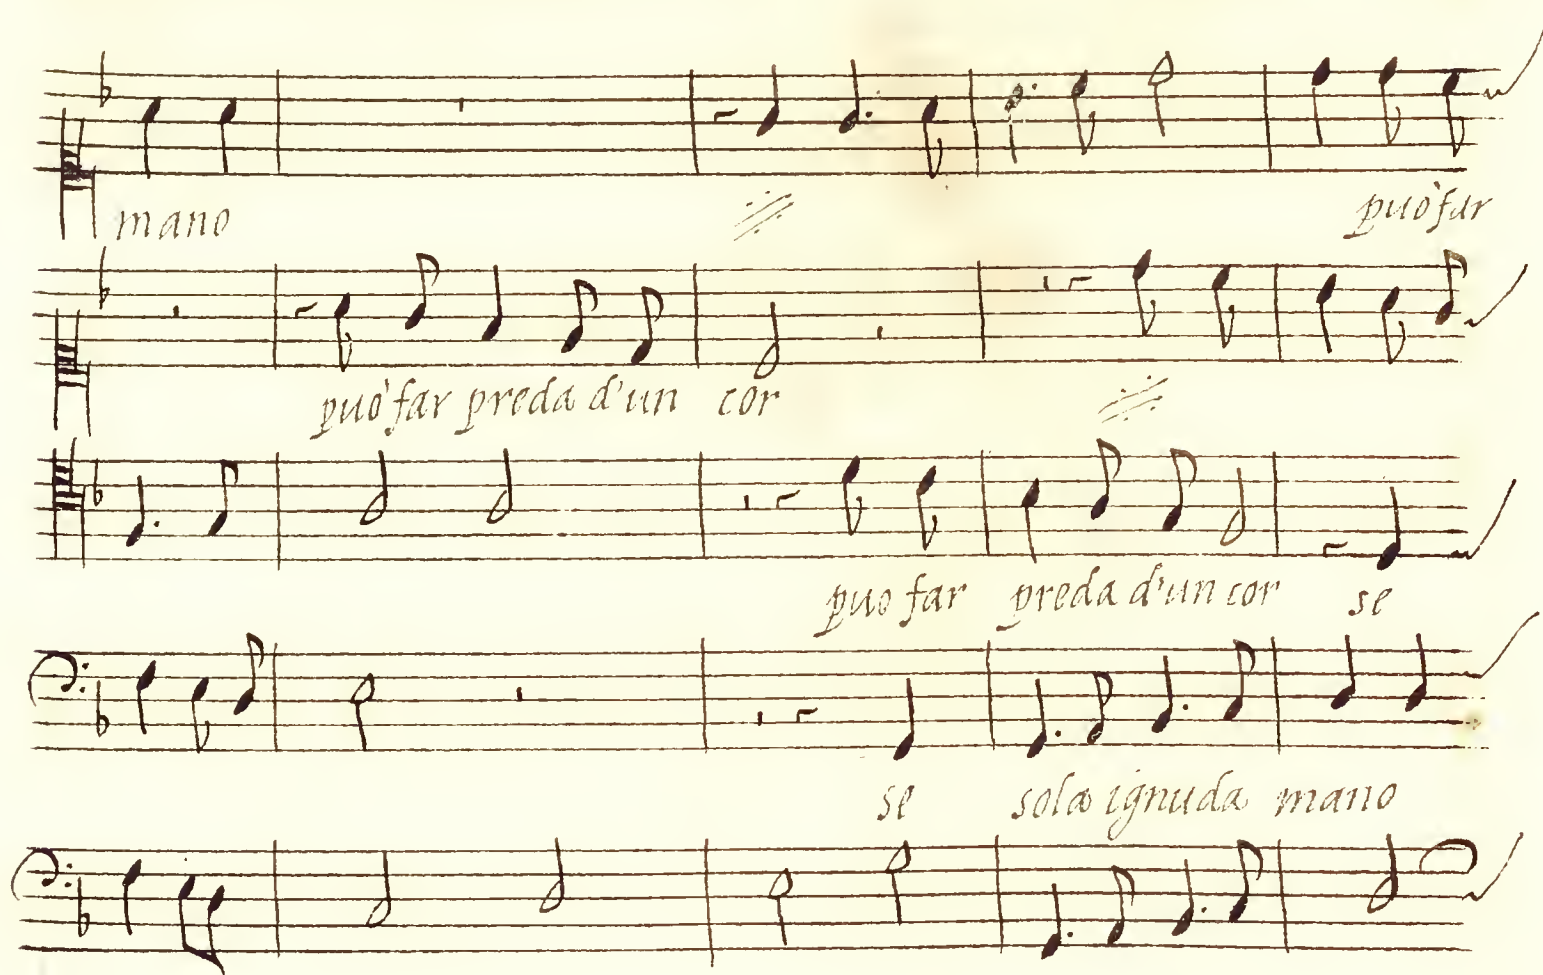 mano puo' far
puo' far preda d'un cor
puo far preda d'un cor se
se sola ignuda mano